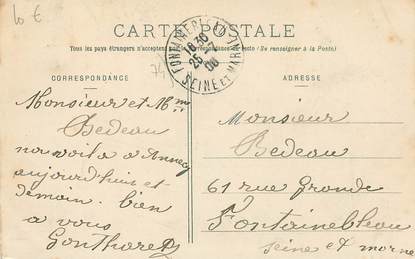 10 €
CARTE POSTALE
Tous les pays étrangers n'acceptent pas la correspondance au recto (Se renseigner à la Poste)
FONTAINEBLEAU
16 30
25 - 7
06
SEINE ET MARNE
CORRESPONDANCE
ADRESSE
Monsieur et Mme
Bedeau
nou voila a Annecy
aujourd'hui et
demain. bien
a vous
Monsieur
Bedeau
61 rue Grande
Fontainebleau
Seine et marne